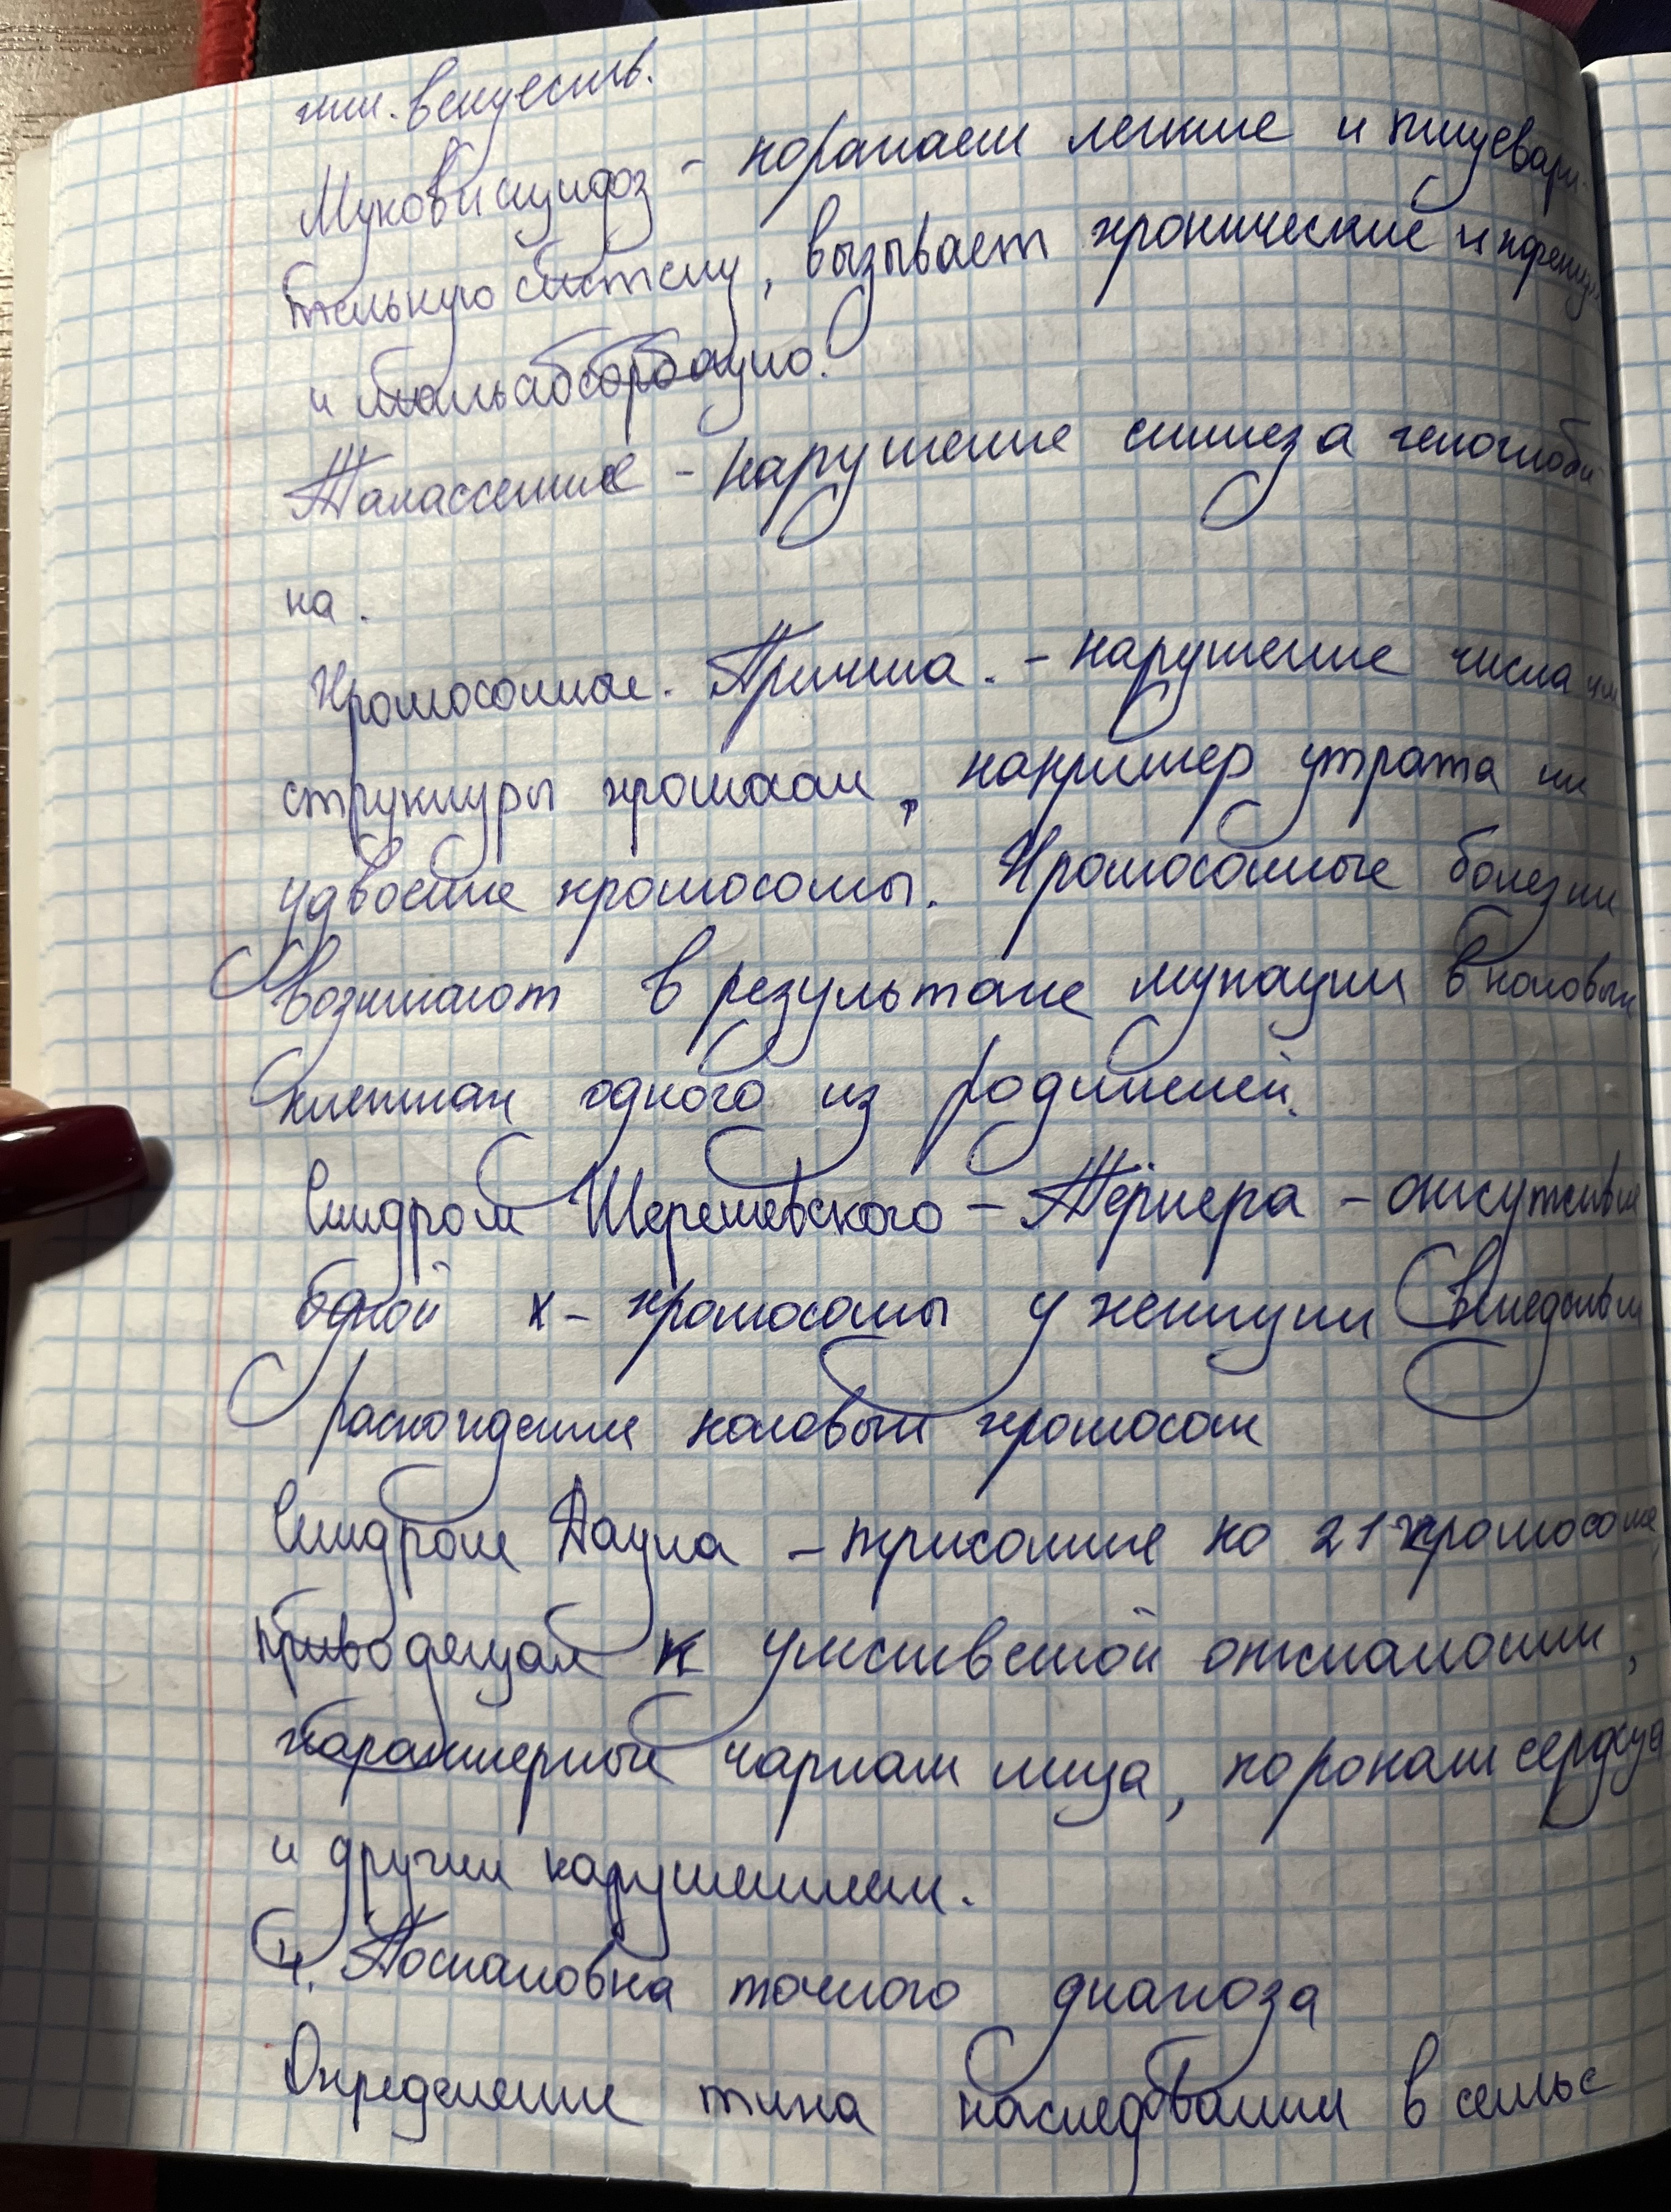 веществ.
Муковисцидоз - поражает легкие и пищевари-
тельную систему, вызывает хронические инфекци
и мальабсорбацию.
Талассемия - нарушение синтеза гемоглоби
на.
Хромосомные. Причина. - нарушение числа или
структуры хромосом, например утрата ил
удвоение хромосомы. Хромосомные болезни
возникают в результате мутации в половых
клетках одного из родителей.
Синдром Шерешевского - Тёрнера - отсутствие
одной х - хромосомы у женщин вследствии
расхождения половых хромосом
Синдром Дауна - трисомия по 21 хромосоме,
приводящая к умственной отсталости,
характерный чертам лица, порокам сердца
и другим нарушениям.
4. Постановка точного диагноза
Определение типа наследования в семье